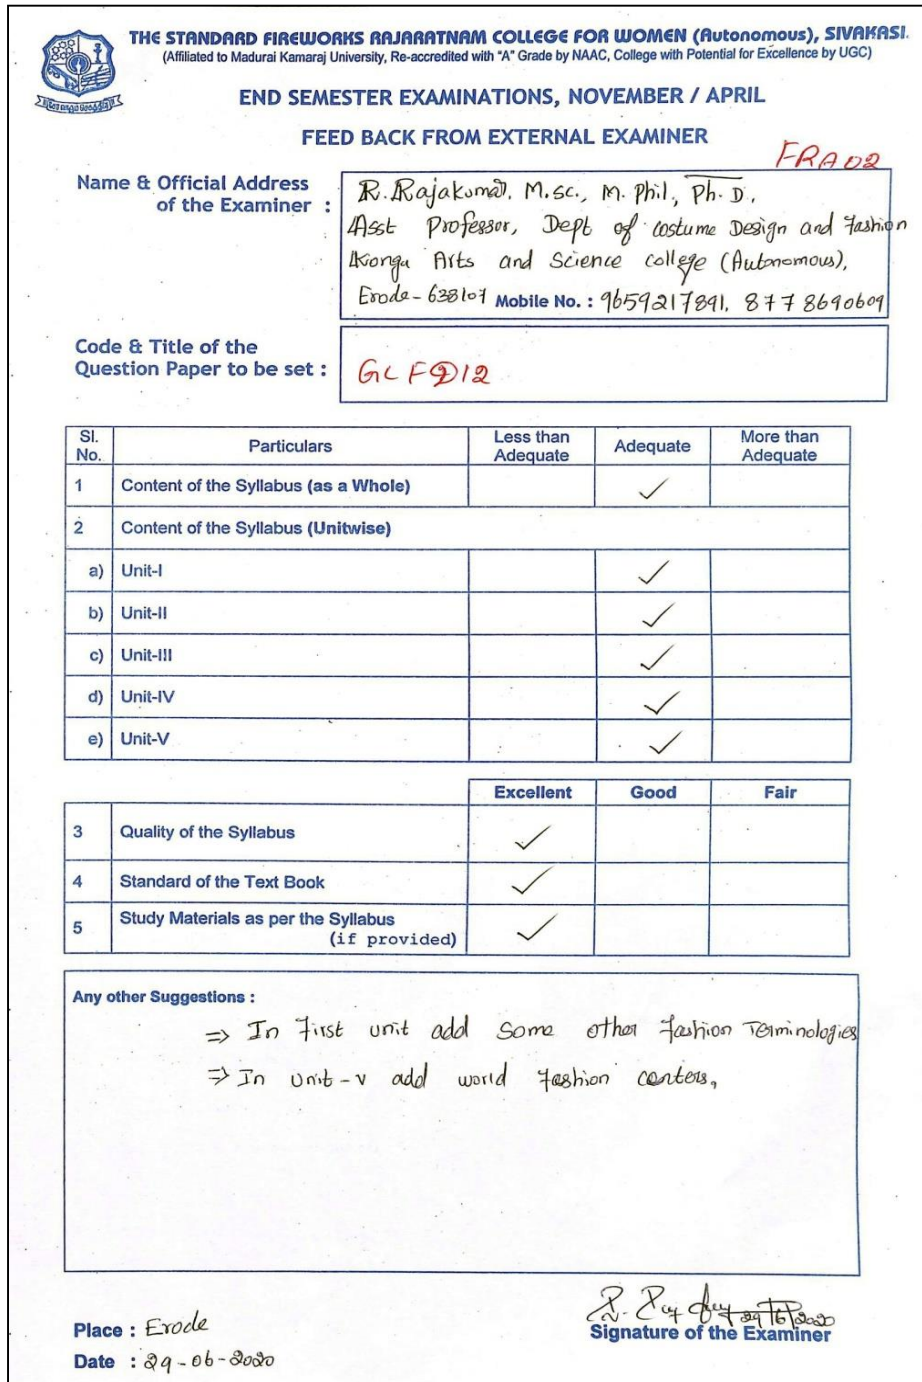 THE STANDARD FIREWORKS RAJARATNAM COLLEGE FOR WOMEN (Autonomous), SIVAKASI.
(Affiliated to Madurai Kamaraj University, Re-accredited with "A" Grade by NAAC, College with Potential for Excellence by UGC)
END SEMESTER EXAMINATIONS, NOVEMBER / APRIL
FEED BACK FROM EXTERNAL EXAMINER
FRA02
Name & Official Address of the Examiner :
R. Rajakumar, M.Sc., M. Phil., Ph. D.,
Asst Professor, Dept of costume Design and Fashion
Kongu Arts and Science college (Autonomous),
Erode-638107 Mobile No. : 9659217891, 8778690609
Code & Title of the Question Paper to be set : GCFD12
Sl. No. Particulars Less than Adequate Adequate More than Adequate
1 Content of the Syllabus (as a Whole) ✓
2 Content of the Syllabus (Unitwise)
a) Unit-I ✓
b) Unit-II ✓
c) Unit-III ✓
d) Unit-IV ✓
e) Unit-V ✓
Excellent Good Fair
3 Quality of the Syllabus ✓
4 Standard of the Text Book ✓
5 Study Materials as per the Syllabus (if provided) ✓
Any other Suggestions :
⇒ In First unit add Some other fashion Terminologies
⇒ In unit-v add world fashion centers,
Place : Erode
Date : 29-06-2020
29/6/2020
Signature of the Examiner